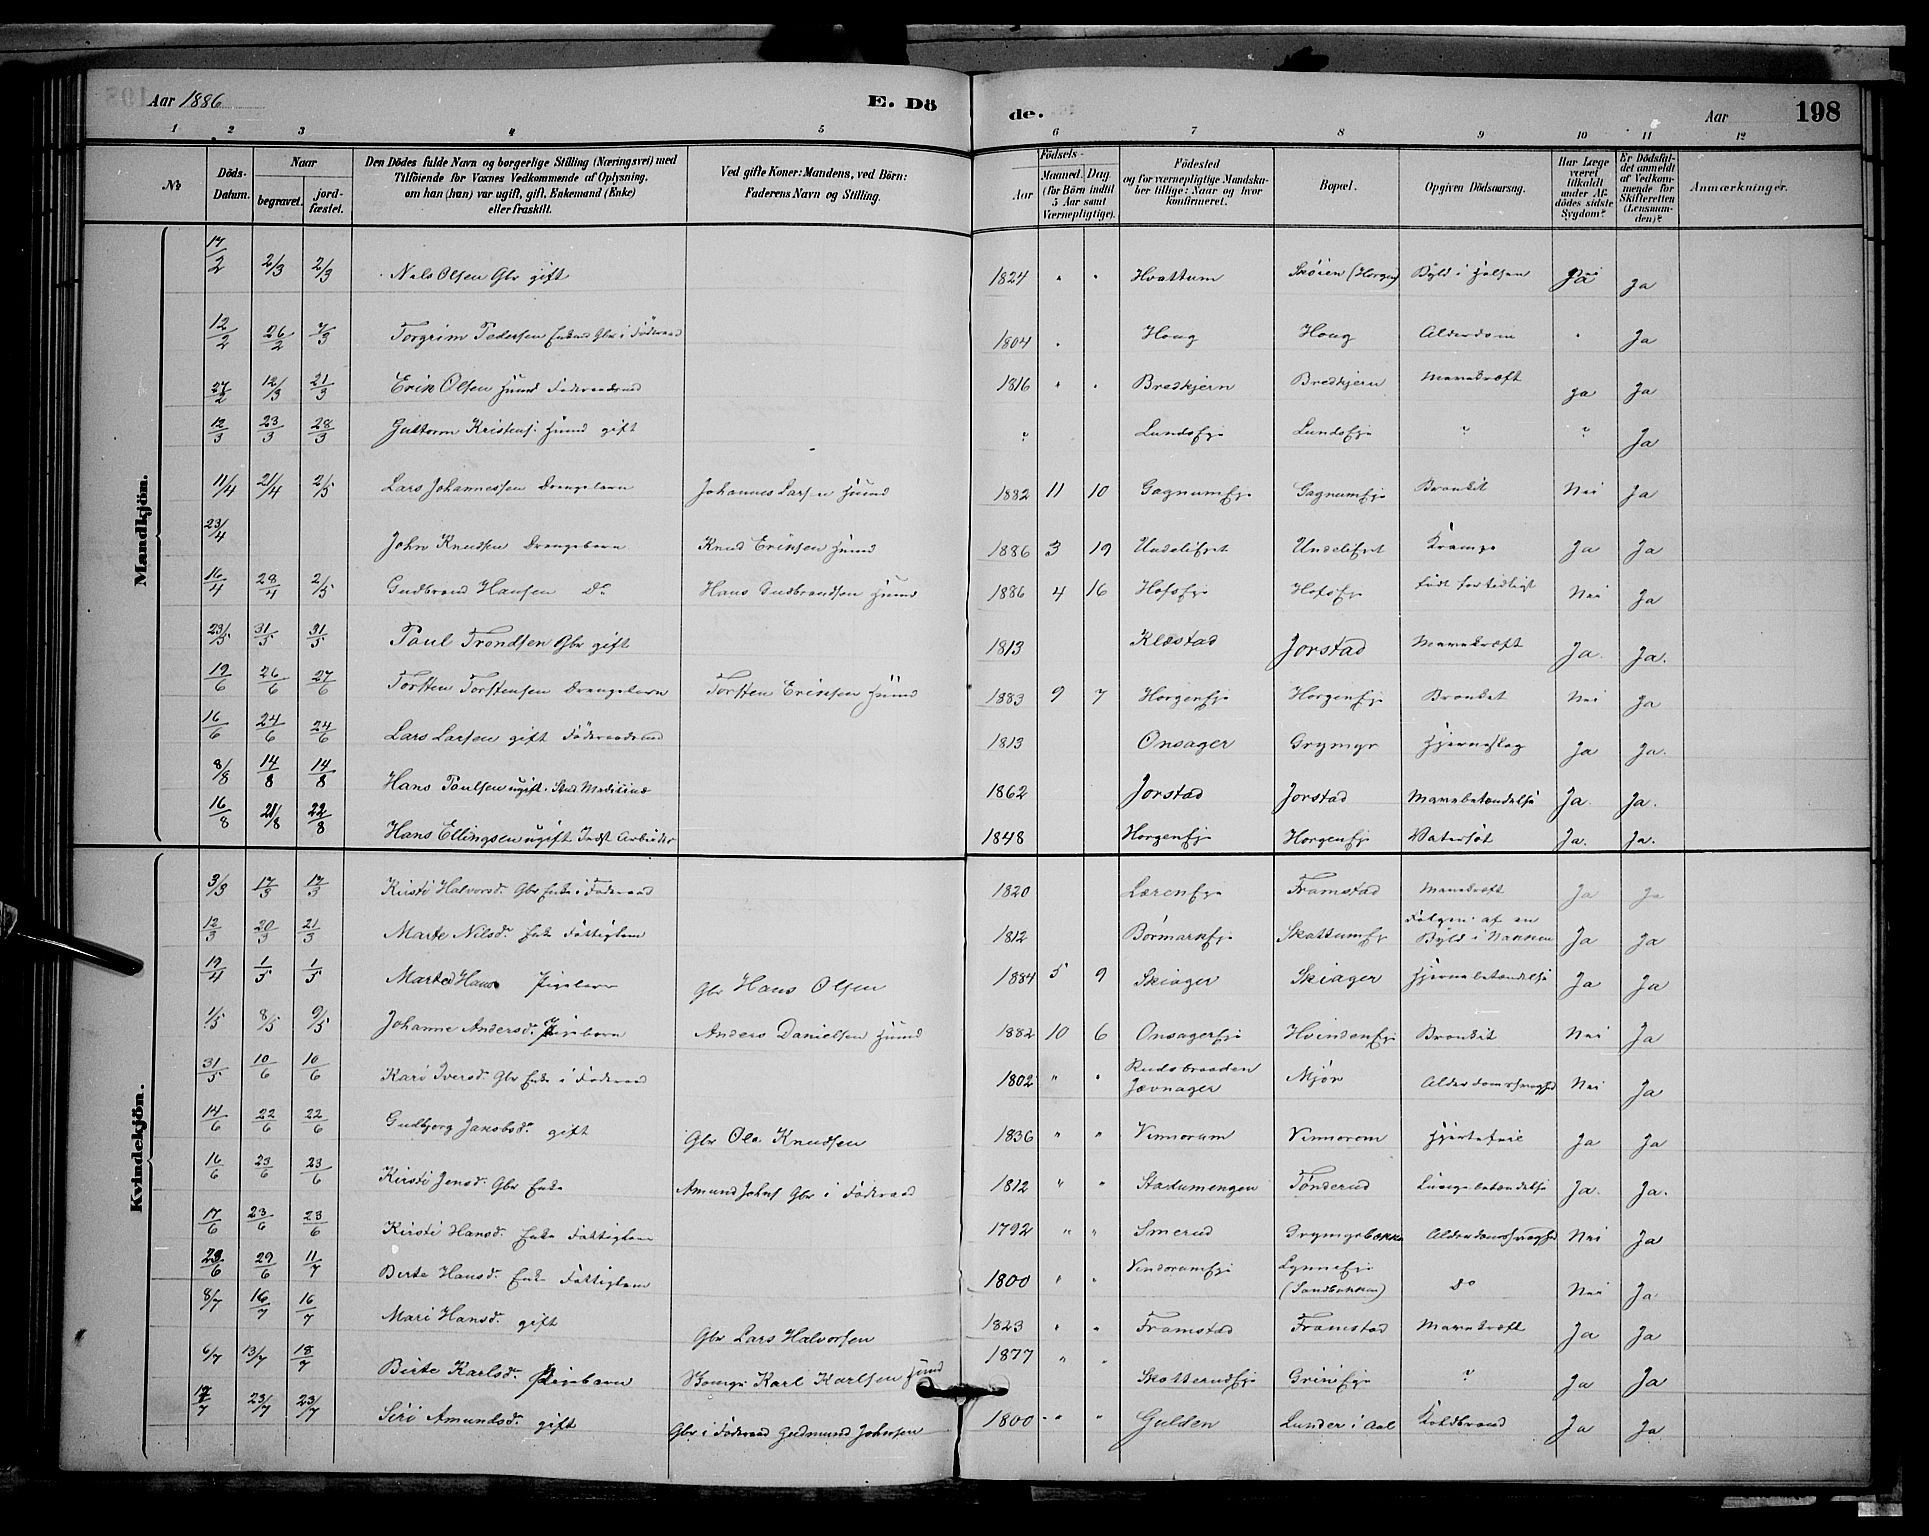 Aar 1886
E. Dö
de.
Aar
198
1 2 3 4 5 6 7 8 9 10 11 12
No
Döds-Datum.
Naar
begravet.
jordfæstet.
Den Dödes fulde Navn og borgerlige Stilling (Næringsvei) med
Tilföiende for Voxnes Vedkommende af Oplysning,
om han (hun) var ugift, gift, Enkemand (Enke)
eller fraskilt.
Ved gifte Koner: Mandens, ved Börn:
Faderens Navn og Stilling.
Födsels-
Aar
Maaned. Dag
(for Börn indtil
5 Aar samt
Værnepligtige).
Födested
og for værnepligtige Mandskaber tillige: Naar og hvor
konfirmeret.
Bopæl.
Opgiven Dödsaarsag.
Har Læge
været
tilkaldt
under Afdödes sidste
Sygdom?
Er Dödsfaldet anmeldt
af Vedkommende for
Skifteretten
(Lensmanden)?
Anmærkninger.
Mandkjön.
17/2 2/3 2/3 Nils Olsen Gbr gift 1824 " " Hvattum Skøien (Horgen) Byld i Halsen Ja Ja
12/2 26/2 7/3 Torgrim Pedersen Enkmd Gbr i Föderaad 1804 " Haug Haug Alderdom " Ja
27/2 12/3 21/3 Erik Olsen Husmd Föderaadsmd 1816 " " Bredkjern Bredkjern Mavekræft Ja Ja
12/3 23/3 28/3 Guttorm Kristens. Husmd gift " Lundseje Lundseje " " Ja
11/4 21/4 2/5 Lars Johannessen Drengebarn Johannes Larsen Husmd 1882 11 10 Gagnumeje Gagnumeje Bronkit Nei Ja
23/4 John Knudsen Drengebarn Knud Eriksen Husmd 1886 3 19 Undelifret Undelifret Krampe Ja Ja
16/4 28/4 2/5 Gudbrand Hansen Do Hans Gudbrandsen Husmd 1886 4 16 Hofseje Hofseje født for tidligt Nei Ja
23/5 31/5 31/5 Poul Trondsen Gbr gift 1813 Klæstad Jorstad Mavekræft Ja. Ja.
19/6 26/6 27/6 Torsten Torstensen Drengebarn Torsten Eriksen Husmd 1883 9 7 Horgeneje Horgeneje Bronkit Nei Ja
16/6 24/6 24/6 Lars Larsen gift Föderaadsmd 1813 Onsager Grymyr Hjerneslag Ja Ja.
8/8 14/8 14/8 Hans Poulsen ugift. Stud Medicinæ 1862 Jorstad Jorstad Mavebetændelse Ja. Ja.
16/8 21/8 22/8 Hans Ellingsen ugift Indst Arbeider 1848 Horgeneje Horgeneje Vatersot Ja. Ja.
Kvindekjön.
3/3 17/3 17/3 Kirsti Halvorsd. Gbr Enke i Föderaad 1820 Læreneje Framstad Mavekræft Ja Ja
12/3 20/3 21/3 Marte Nilsd. Enke Fattiglem 1812 Børmarkeje Skattumej Følgen af en
Byld i Nakken Ja Ja
19/4 1/5 1/5 Marte Hans Pigebarn Gbr Hans Olsen 1884 5 9 Skiager Skiager Hjernebetændelse Ja Ja
1/5 8/5 9/5 Johanne Andersd. Pigebarn Anders Danielsen Husmd 1882 10 6 Onsagereje Hvindeneje Bronkit Nei Ja
31/5 10/6 10/6 Kari Iversd. Gbr Enke i Föderaad 1802 " " Rudsbraaden
Jævnager Mjør Alderdomssvaghed Nei Ja
14/6 22/6 22/6 Gudbjorg Jakobsd. gift Gbr Ole Knudsen 1836 " " Vinnorum Vinnorom Hjertefeil Ja Ja
16/6 23/6 23/6 Kirsti Jensd. Gbr Enke Amund Johns Gbr i Föderaad 1812 " " Stadumengen Tønderud Lungebetændelse Ja. Ja.
17/6 23/6 23/6 Kirsti Hansd. Enke Fattiglem 1792 " " Smerud Grymyrbakken Alderdomssvaghed Nei Ja
23/6 29/6 11/7 Birte Hansd. Enke Fattiglem 1800 " " Vindorumeje Lynneeje
(Sandbakken) Do Nei Ja.
8/7 16/7 16/7 Mari Hansd. gift Gbr Lars Halvorsen 1823 " " Framstad Framstad Mavekræft Ja Ja
6/7 13/7 18/7 Birte Karlsd. Pigebarn Karl Karlsen Husmd 1877 " " Skatterudeje Grineje " Ja Ja
17/7 23/7 23/7 Siri Amundsd. gift Gbr i Föderaad Guldmund Johnsen 1800 " " Gulden Lunder i Aal Koldbrand Ja Ja